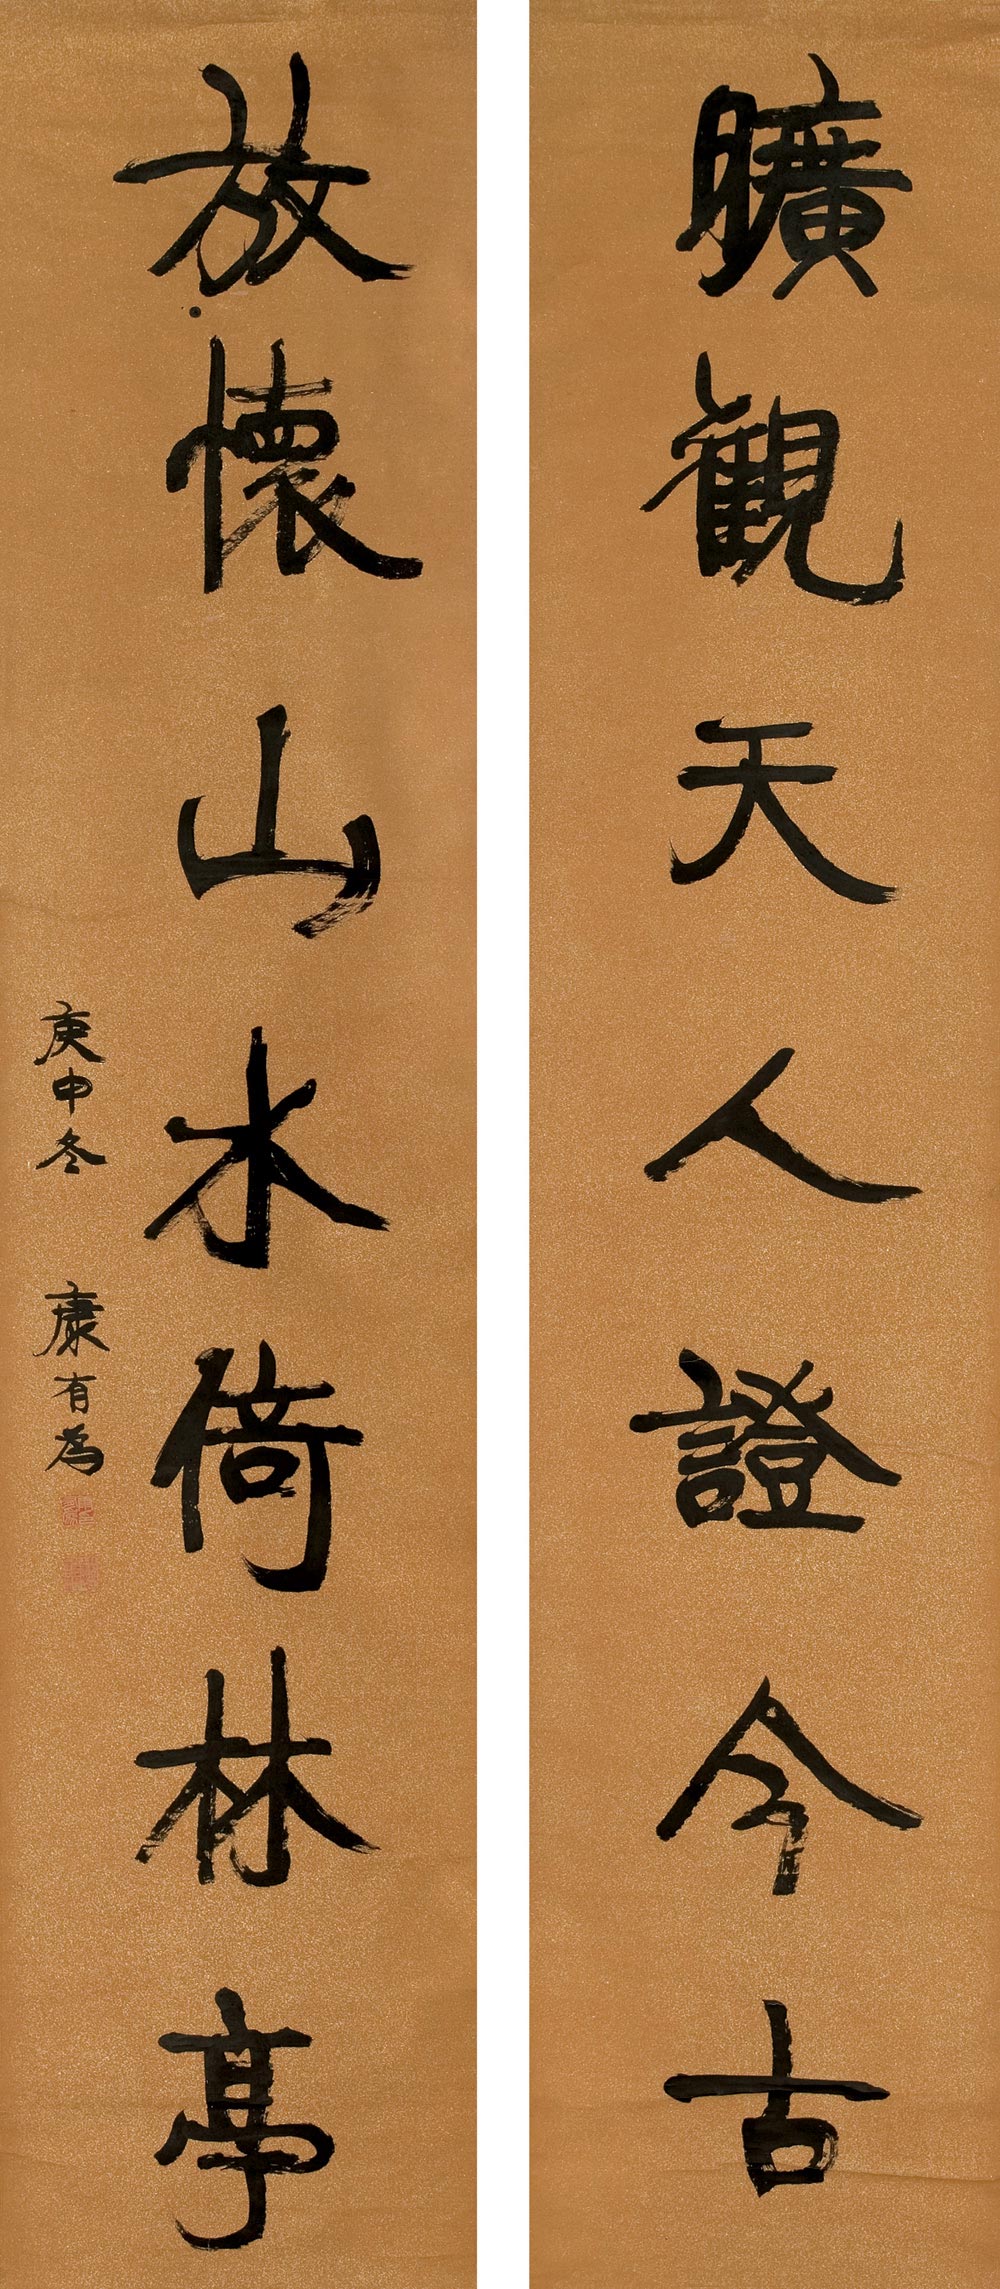 曠觀天人證今古
放懷山水倚林亭
庚申冬 康有為